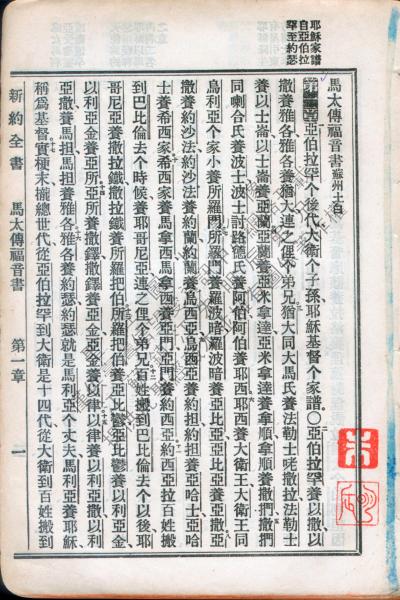 耶穌家譜
自亞伯拉
罕至約瑟
馬太傳福音書 蘇州土白
第一章 亞伯拉罕个後代大衛个子孫耶穌基督个家譜〇亞伯拉罕養以撒以
撒養雅各雅各養猶大連之俚个弟兄猶大同大馬氏養法勒士咾撒拉法勒士
養以士崙以士崙養亞蘭亞蘭養亞米拿達亞米拿達養拿順拿順養撒捫撒捫
同喇合氏養波士波士同路得氏養阿伯阿伯養耶西耶西養大衛王大衛王同
烏利亞个家小養所羅門所羅門養羅波暗羅波暗養亞比亞亞比亞養亞撒亞
撒養約沙法約沙法養約蘭約蘭養烏西亞烏西亞養約担約担養亞哈士亞哈
士養希西家希西家養馬拿西馬拿西養亞們亞們養約西亞約西亞拉百姓搬
到巴比倫去个時候養耶哥尼亞連之俚个弟兄百姓搬到巴比倫去个以後耶
哥尼亞養撒拉鐵撒拉鐵養所羅把伯所羅把伯養亞比鬱亞比鬱養以利亞金
以利亞金養亞所亞所養撒鐸撒鐸養亞金亞金養以律以律養以利亞撒以利
亞撒養馬担馬担養雅各雅各養約瑟約瑟就是馬利亞个丈夫馬利亞養耶穌
稱爲基督實梗末攏總世代從亞伯拉罕到大衛是十四代從大衛到百姓搬到
新約全書 馬太傳福音書 第一章 一